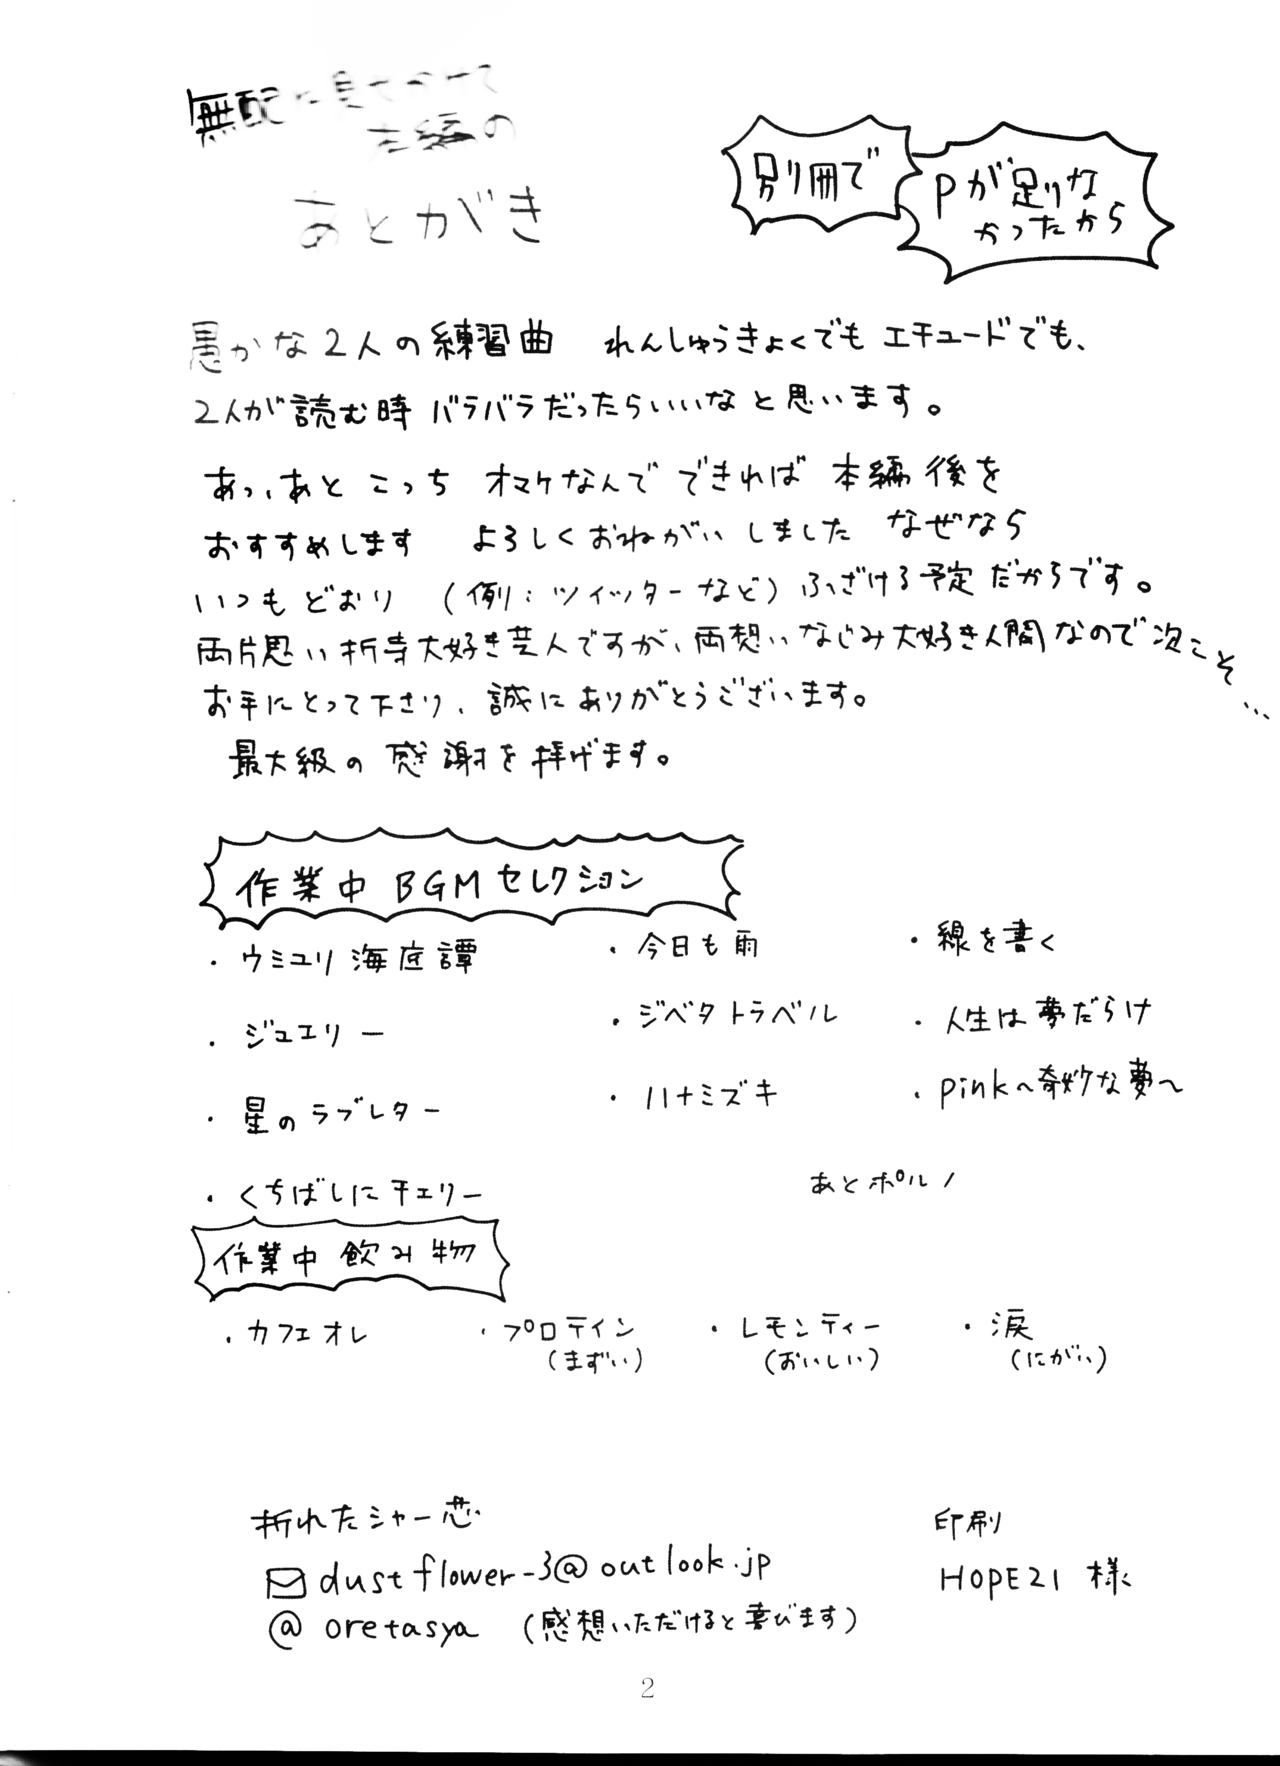 無配に見せかけて
本編の
あとがき
別冊で
Pが足りな
かったから
愚かな2人の練習曲 れんしゅうきょくでも エチュードでも、
2人が読む時 バラバラだったらいいなと思います。
あっ、あと こっち オマケなんで できれば 本編後を
おすすめします よろしくおねがいしました なぜなら
いつもどおり (例:ツイッターなど) ふざける予定だからです。
両片思い折寺大好き芸人ですが、両想いなじみ大好き人間なので次こそ…
お手にとって下さり、誠にありがとうございます。
最大級の感謝を捧げます。
作業中BGMセレクション
・ウミユリ海底譚 ・今日も雨 ・線を書く
・ジュエリー ・ジベタトラベル ・人生は夢だらけ
・星のラブレター ・ハナミズキ ・pink〜奇妙な夢〜
・くちばしにチェリー あとポルノ
作業中飲み物
・カフェオレ ・プロテイン ・レモンティー ・涙
(まずい) (おいしい) (にがい)
折れたシャー芯 印刷
dustflower-3@outlook.jp HOPE21 様
@oretasya (感想いただけると喜びます)
2